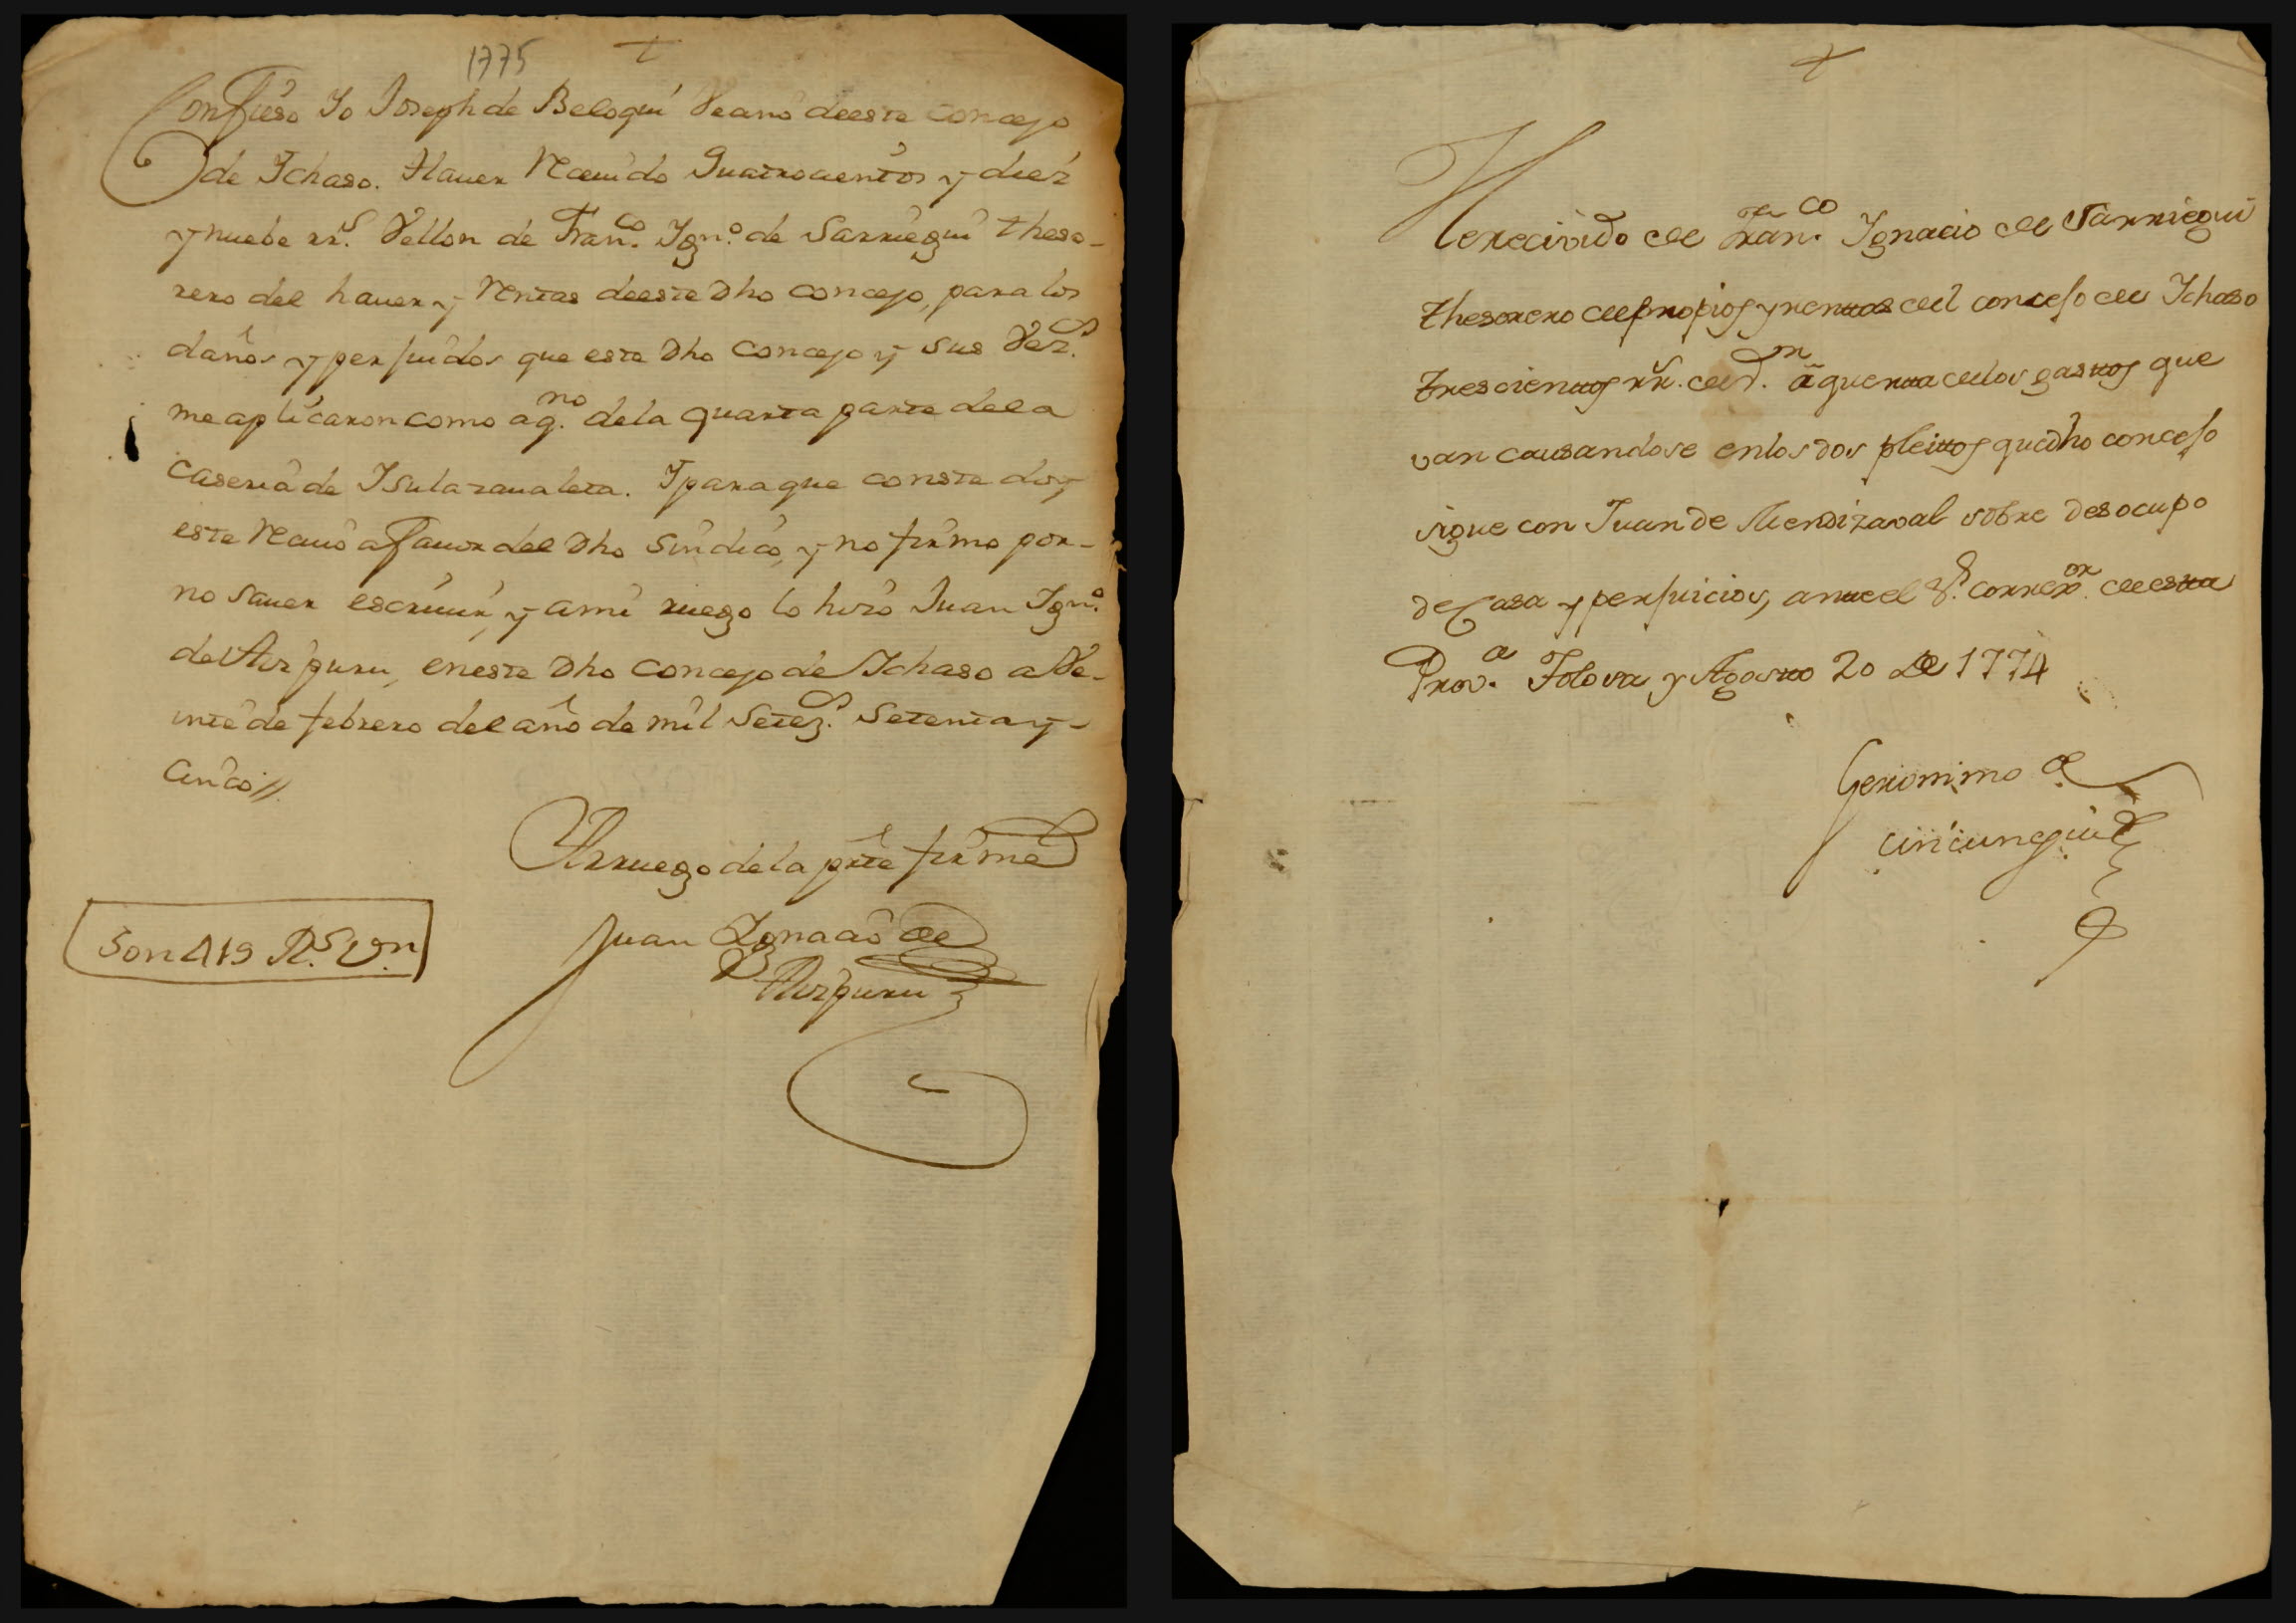 1775
Confieso Yo Joseph de Beloqui Vecino deeste concejo
de Ychaso. Haver Recivido Quatrocientos y diez
y nuebe rr.s Vellon de Fran.co Ygn.o de Sarriegui theso-
rero del haver y Rentas deeste Dho concejo, para los
daños y perjuidos que este Dho concejo y sus Vez.s
me aplicaron como aq.no dela quarta parte dela
caseria de Ysulazavaleta. Y para que conste doy
este Recivo a favor del Dho Sindico, y no firmo por-
no saver escrivir, y ami ruego lo hizo Juan Ygn.o
de Aizpuru, en este Dho concejo de Ychaso a Ve-
inte de febrero del año de mil Setez.s Setenta y-
Cinco//.
Arruego dela prte firmé
Juan Ygnacio de
Aizpuru
Son 419 R.s V.n
He recivido de Fran.co Ygnacio de Sarriegui
thesorero de propios y renttas del concejo de Ychaso
Trescienttos rr.s de v.n à quentta de los gasttos que
van causandose en los dos pleittos que dho concejo
sigue con Juan de Mendizaval sobre desocupo
de Casa y perjuicios, antte el S.r correx.or de estta
Prov.a Tolosa y Agostto 20 de 1774
Geronimo de
Cincunegui